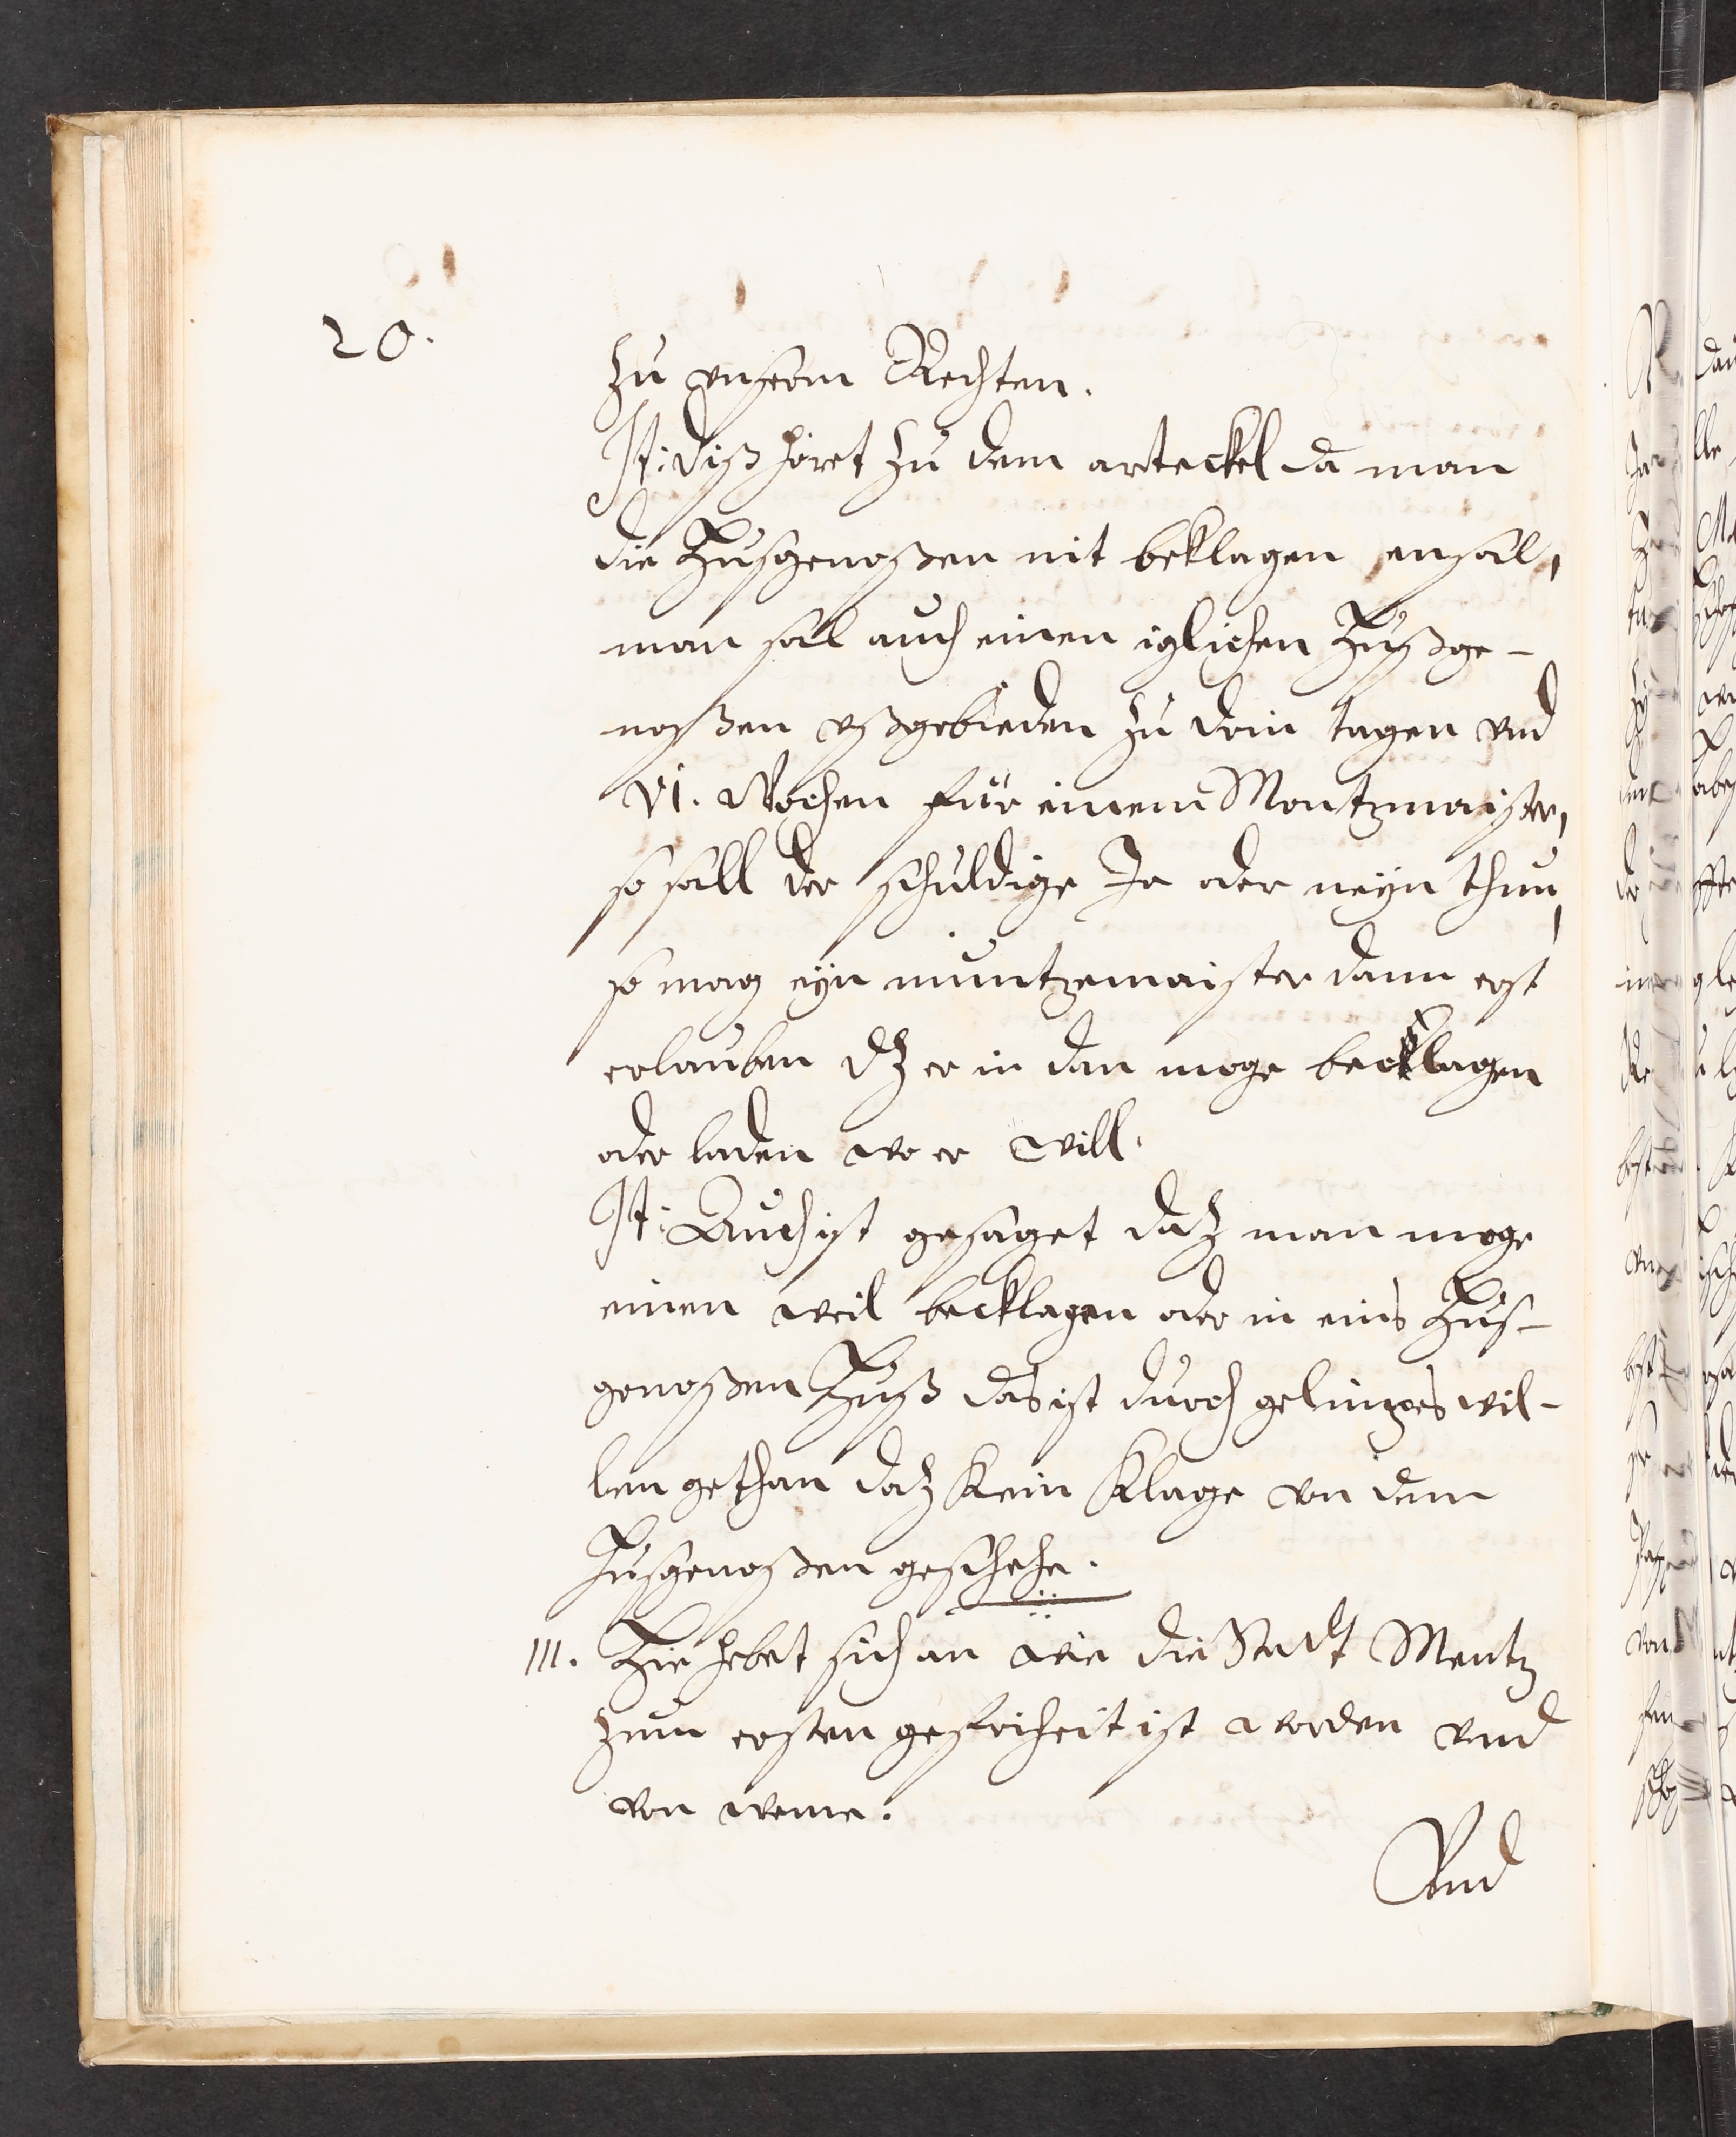 20.
zu unserm Rechten.
It: diß höret zu dem arteckel da man
die Husgenoßen nit beklagen ensal,
man sal auch einen iglichen Hußge-
noßen ußgebieden zu drin tagen vnd
VI. Wochen für einem Montzmaister,
so sall der schuldige Ja oder neyn thun,
so mag eyn muntzemaister dann erst
erlauben dz er in dan moge becklagen
oder laden wo er will.
It: Auch ist gesaget daz man moge
einen weil becklagen oder in eins Hus-
genoßen Huß das ist durch gelimpes wil-
len gethan daz kein klage von dem
Husgenoßen geschehe.
III. Hie hebet sich an wie die Stadt Mentz
zum ersten gefriheit ist worden vnd
von weme.
Vnd